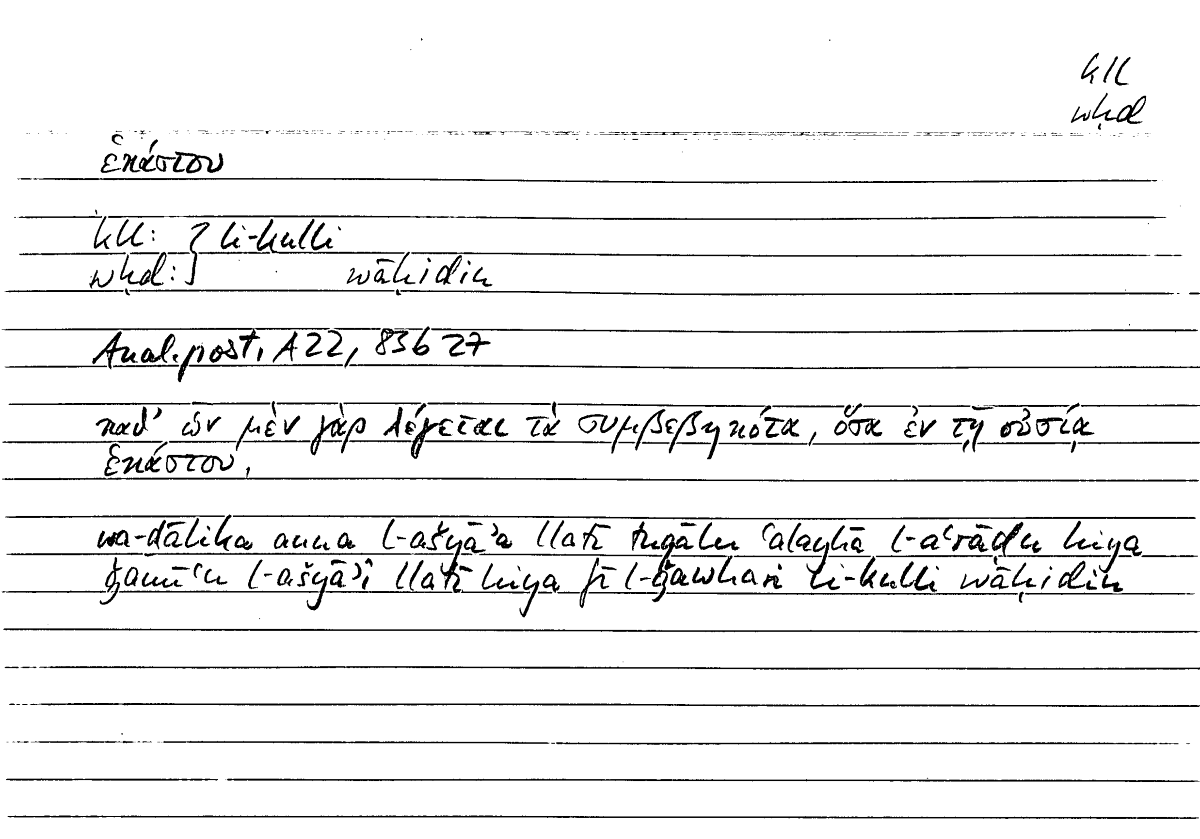 kll
wḥd
ἑκάστου
kll: } li-kulli
wḥd: } wāḥidin
Anal. post. A 22, 83b 27
καθ' ὧν μὲν γὰρ λέγεται τὰ συμβεβηκότα, ὅσα ἐν τῇ οὐσίᾳ
ἑκάστου,
wa-ḏālika anna l-ašyā'a llatī tuqālu ʿalayhā l-aʿrāḍu hiya
ǧamīʿu l-ašyā'i llatī hiya fī l-ǧawhari li-kulli wāḥidin